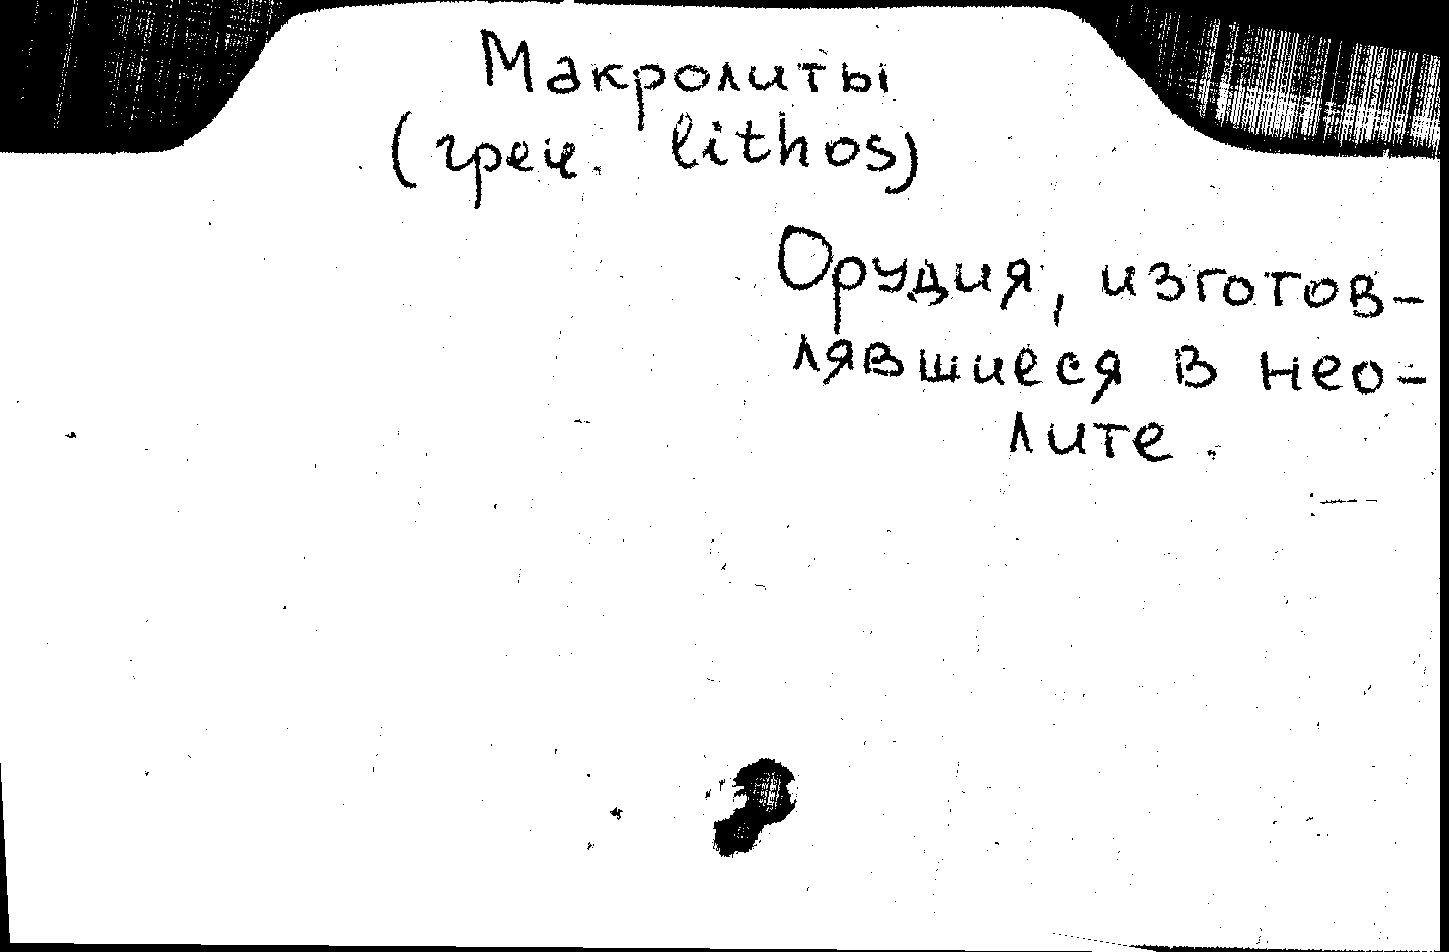 Макролиты
(греч. lithos)
Орудия, изготов-
лявшиеся в нео-
лите.